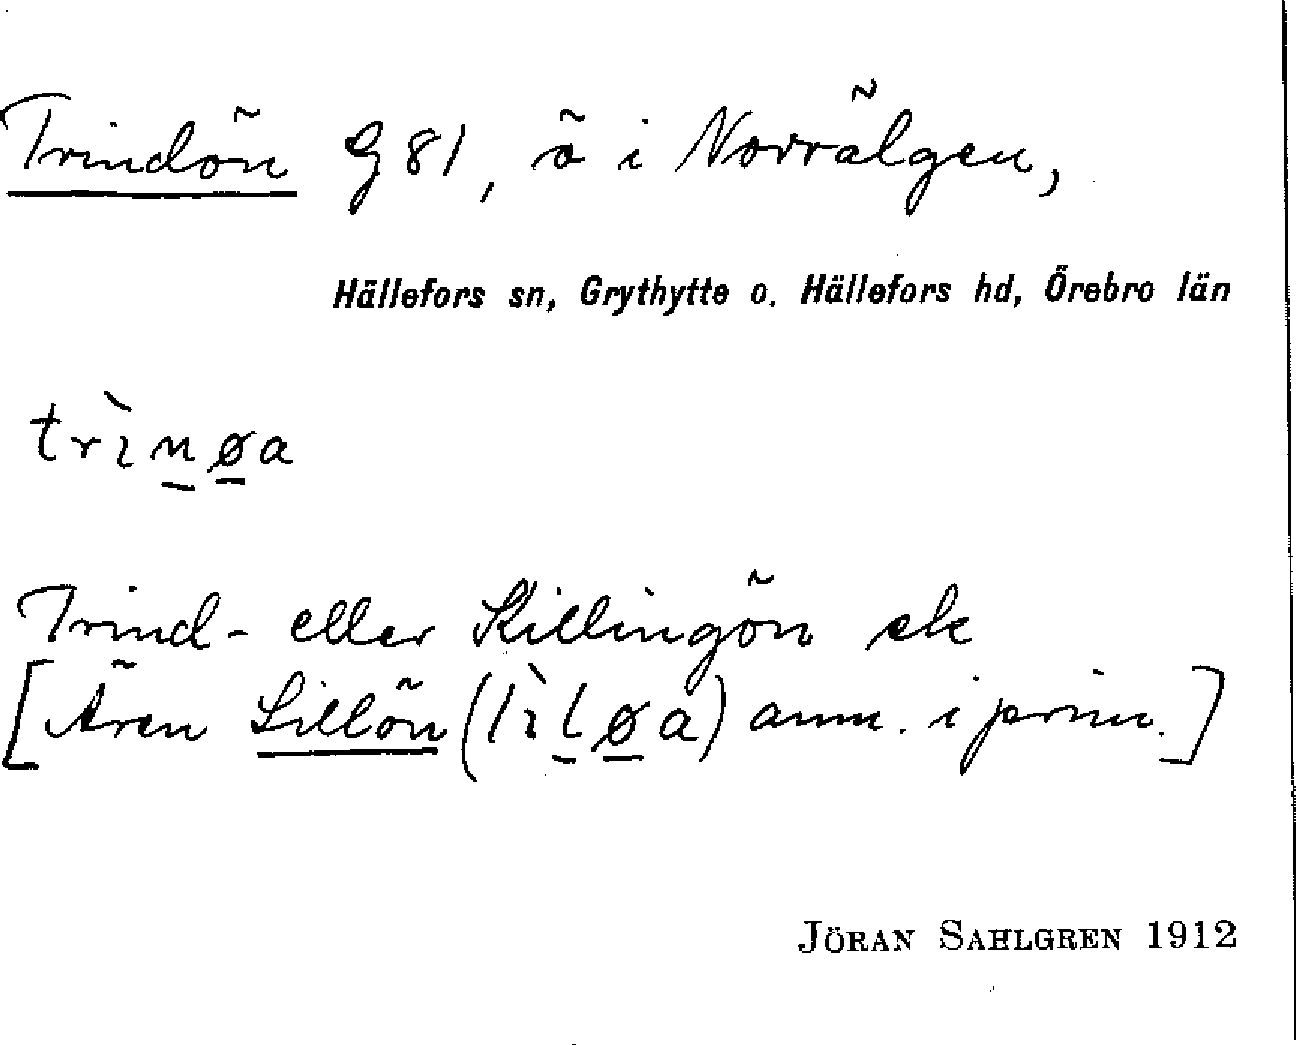 Trindön G 81, ö i Norrälgen,
Hällefors sn, Grythytte o. Hällefors hd, Örebro län
trı̀n̲ø̲a
Trind- eller Killingön ek
[Även Lillön (lı̀l̲ø̲a) anm. i prim.]
JÖRAN SAHLGREN 1912